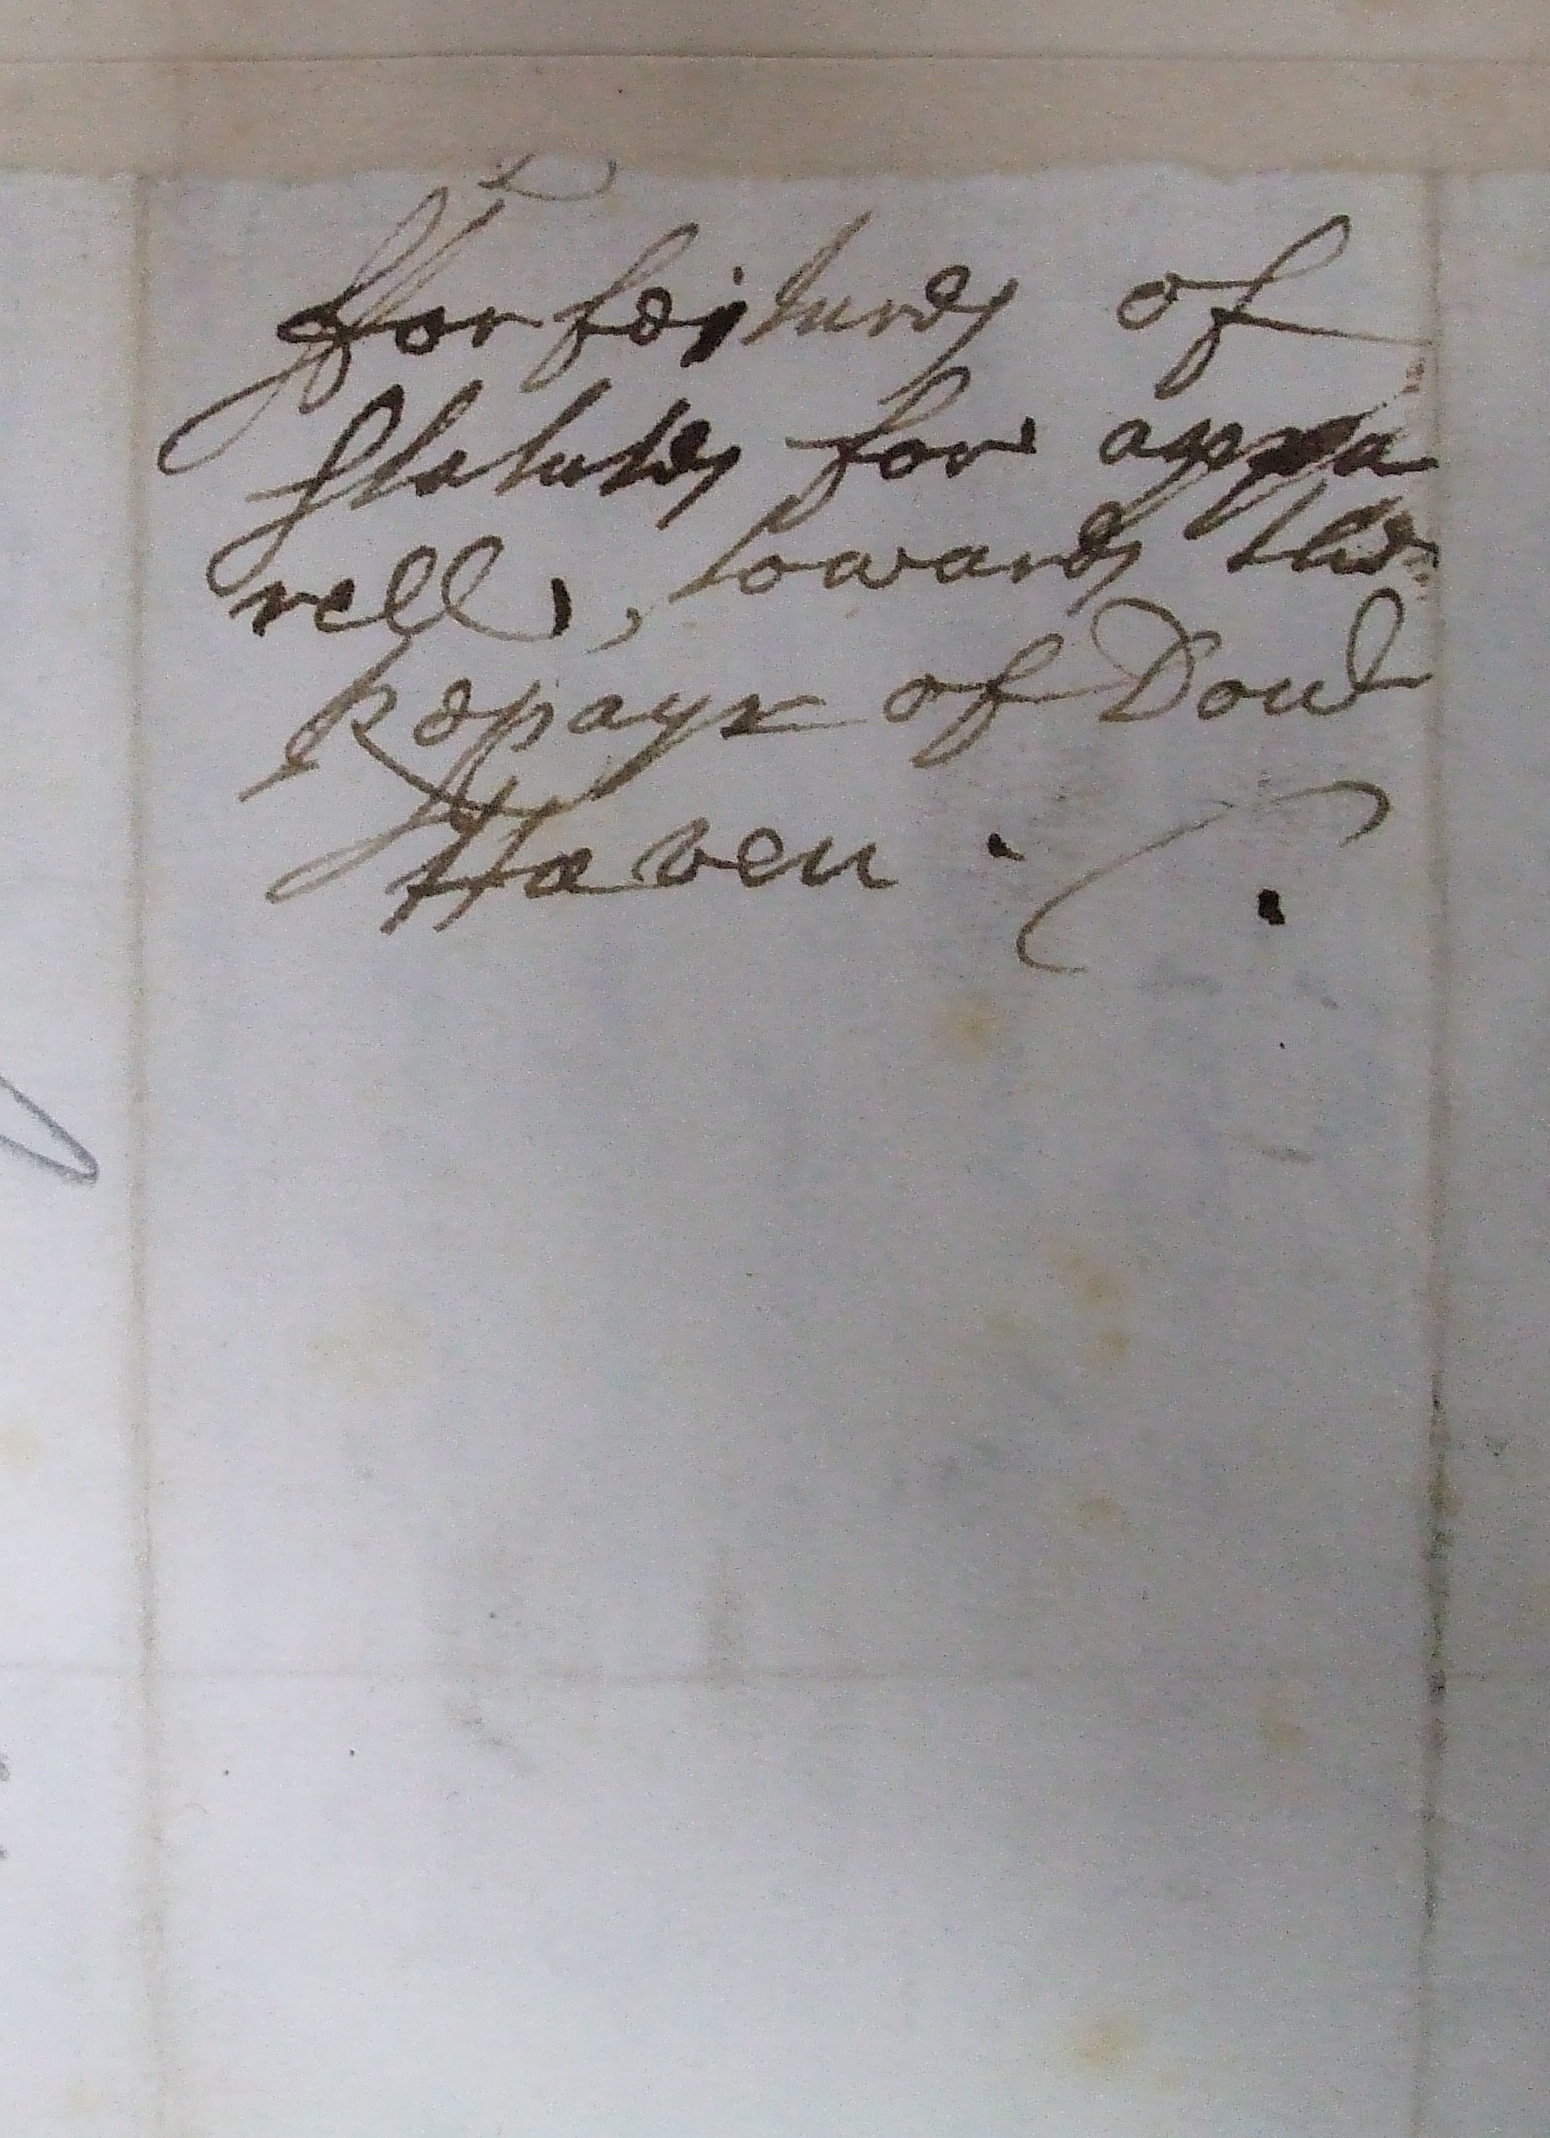 Forfeitures of
statutes for appa
rell, towardes the
Repayr of Dover
Haven .